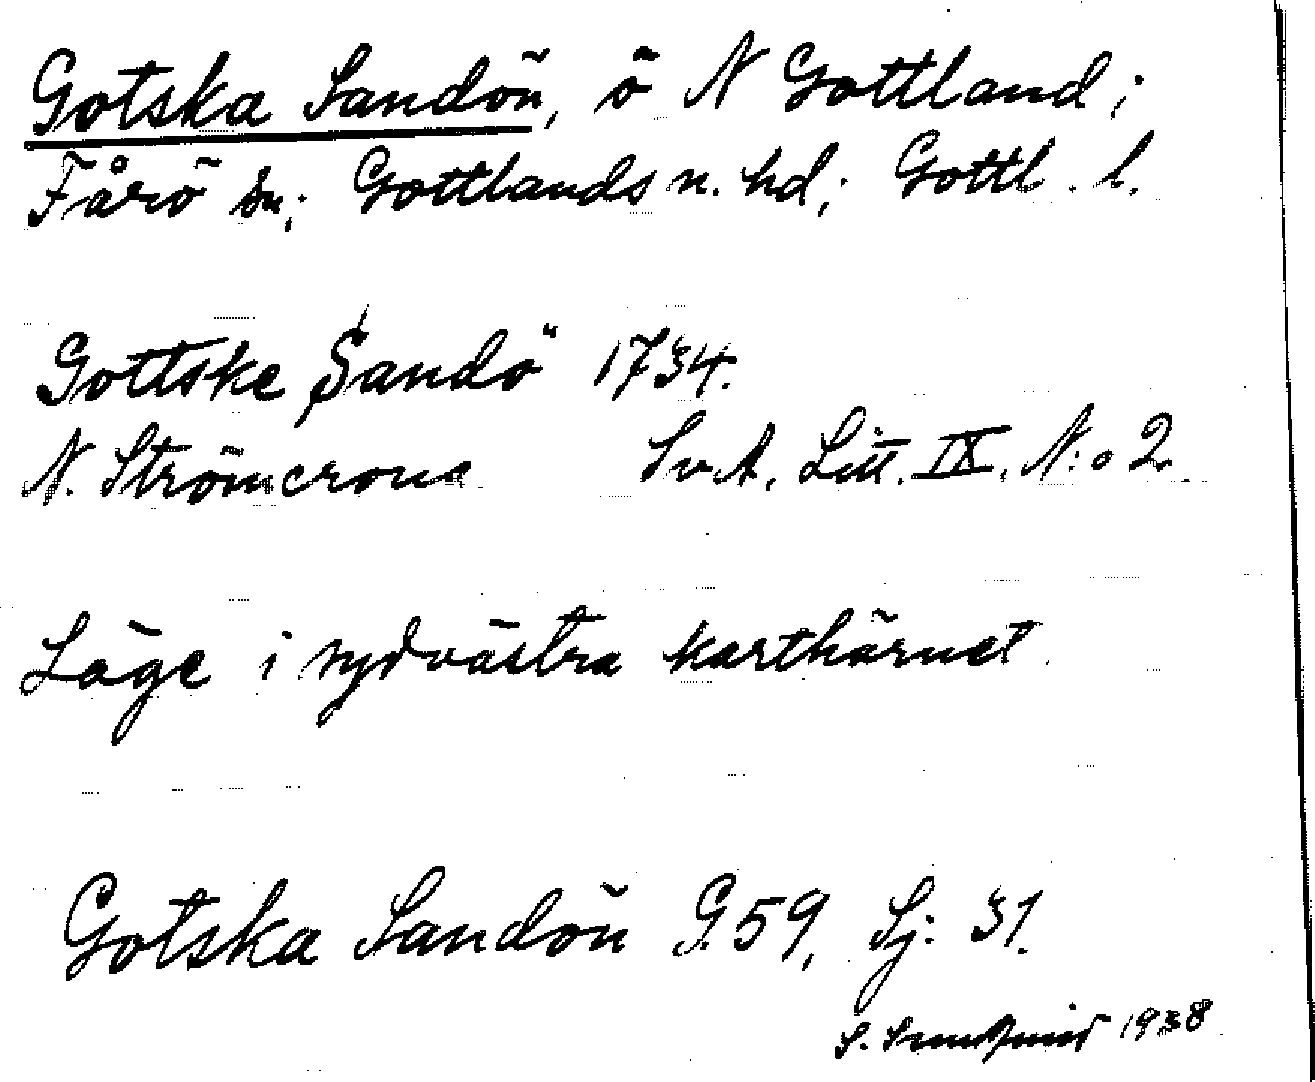 Gotska Sandön, ö N Gottland;
Fårö sn; Gottlands n. hd; Gottl. l.
Gottske Sandö 1734.
N. Strömcrona SvA. Litt. IX. N:o 2.
Läge i sydvästra karthörnet.
Gotska Sandön G. 59, Sj: 31.
S. 1938